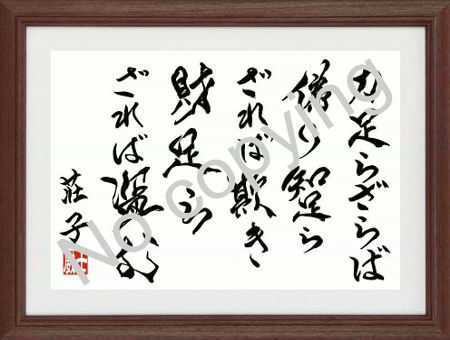 力足らざらば
偽り知足ら
ざれば欺き、
財足ら
ざれば盗む
荘子
No copying